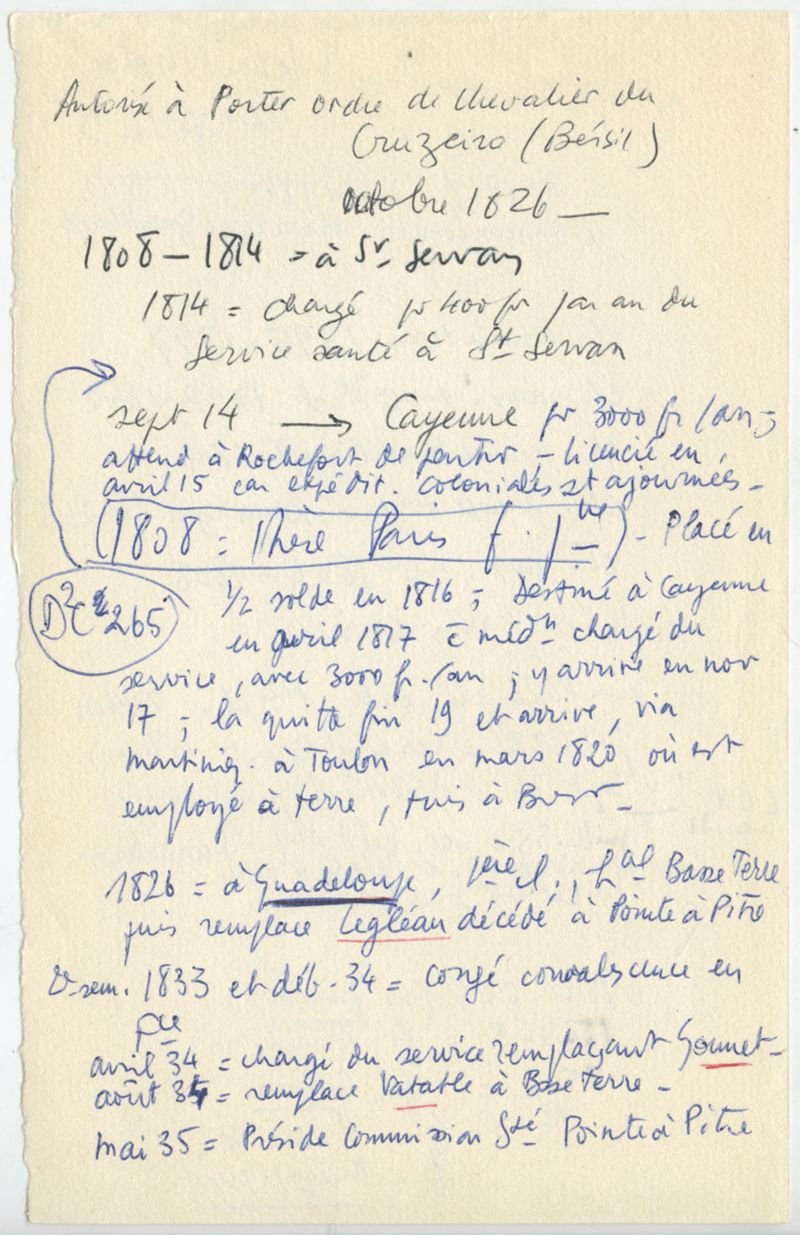 Autorisé à Porter ordre de Chevalier du
Cruzeiro (Brésil)
octobre 1826 —
1808 – 1814 = à St Servan
1814 = chargé pr 400 fr par an du
service santé à St Servan
sept 14 → Cayenne pr 3000 fr / an ;
attend à Rochefort de partir – licencié en
avril 15 car expédit. coloniales st ajournées –
(1808 = thèse Paris f. jne) – Placé en
D2C2 265
1/2 solde en 1816 ; Destiné à Cayenne
en avril 1817 c̄ médn chargé du
service, avec 3000 fr. / an ; y arrive en nov
17 ; la quitte fin 19 et arrive, via
Martiniq. à Toulon en mars 1820 où est
employé à terre, puis à Brest –
1826 = à Guadeloupe, 1ère cl., hal Basse Terre
puis remplace Legléau décédé à Pointe à Pitre
2e sem. 1833 et déb. 34 = congé convalescence en
fce
avril 34 = chargé du service remplaçant Gonnet –
août 34 = remplace Vatable à Basse Terre –
mai 35 = Préside Commission Sté Pointe à Pitre